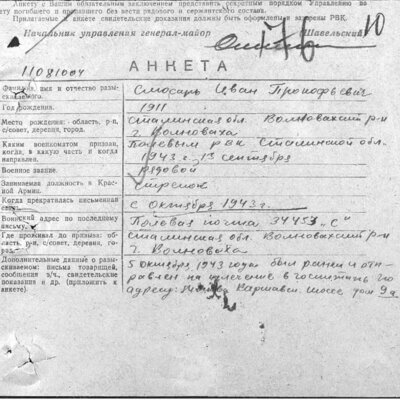 Анкету с Вашим обязательным заключением представить секретным порядком Управлению по
учету погибшего и пропавшего без вести рядового и сержантского состава.
Прилагаемые к анкете свидетельские показания должны быть оформлены РВК.
Начальник управления генерал-майор (Шавельский)
176 10
11081004
АНКЕТА
Фамилия, имя и отчество разыскиваемого. Слюсарь Иван Прокофьевич
Год рождения. 1911
Место рождения: область, р-н, с/совет, деревня, город. Сталинская обл. Волновахский р-н
г. Волноваха
Каким военкоматом призван, когда, в какую часть и когда направлен. Полевым РВК Сталинской обл.
1943 г. 13 сентября
Военное звание. рядовой
Занимаемая должность в Красной Армии. стрелок
Когда прекратилась письменная связь. с Октября 1943 г.
Воинский адрес по последнему письму. Полевая почта 34453 "С"
Где проживал до призыва: область, р-н, с/совет, деревня, город. Сталинская обл. Волновахский р-н
г. Волноваха
Дополнительные данные о разыскиваемом: письма товарищей, сообщения в/ч., свидетельские показания и др. (приложить к анкете). 5 Октября 1943 года был ранен и отправлен на излечение в госпиталь по
адресу: Москва Варшавск. шоссе дом 9а